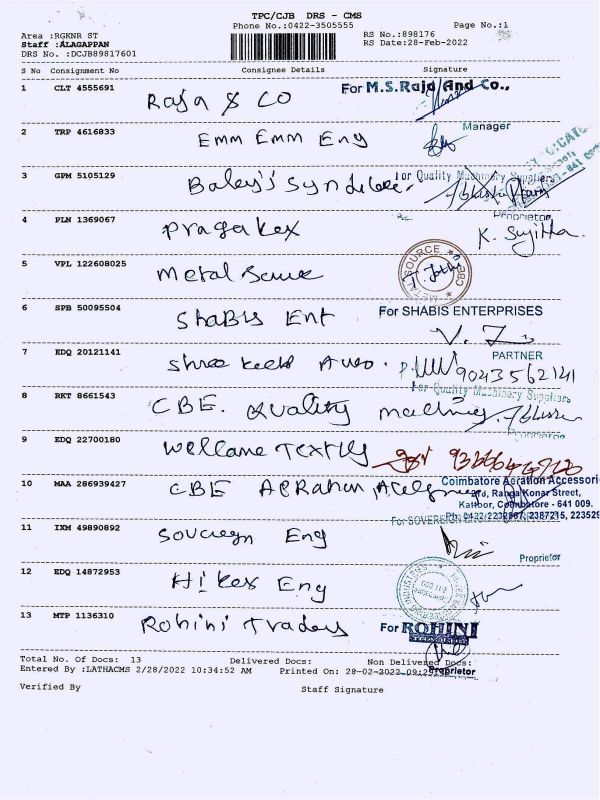 TPC/CJB DRS - CMS
Phone No.:0422-3505555
Page No.:1
Area :RGKNR ST
Staff :ALAGAPPAN
DRS No. :DCJB89817601
RS No.:898176
RS Date:28-Feb-2022
S No Consignment No Consignee Details Signature
1 CLT 4555691 Raja & CO For M.S.Raja And Co.,
Manager
2 TRP 4616833 Emm Emm Eng
3 GPM 5105129 For Quality Machinery Suppliers
Proprietor
4 PLN 1369067 Pragatex K. Sujitha.
5 VPL 122608025 Metal METAL SOURCE CBE
6 SPB 50095504 Shabis Ent For SHABIS ENTERPRISES
PARTNER
7 EDQ 20121141 Shree 9043562141
For Quality Machinery Suppliers
8 RKT 8661543 CBE. Quality
Proprietor
9 EDQ 22700180
10 MAA 286939427 CBE Coimbatore Aeration Accessori
Ranga Konar Street,
Kattoor, Coimbatore - 641 009.
For SOVEREIGN
11 IXM 49890892 Eng
Proprietor
12 EDQ 14872953 Hitex Eng
13 MTP 1136310 Rohini Traders For ROHINI
Proprietor
Total No. Of Docs: 13 Delivered Docs: Non Delivered Docs:
Entered By :LATHACMS 2/28/2022 10:34:52 AM Printed On: 28-02-2022
Verified By Staff Signature